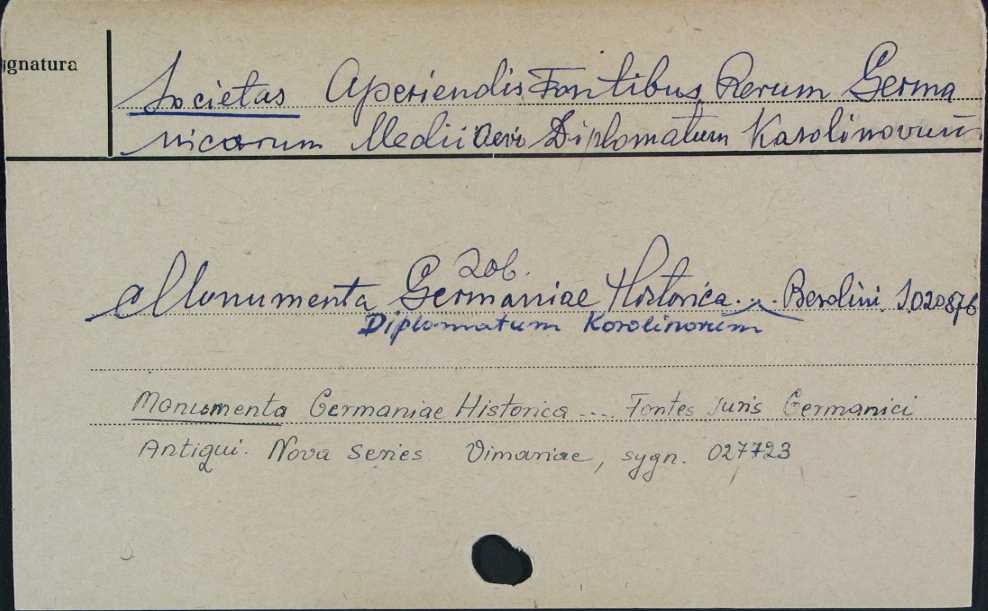 ignatura
Societas Aperiendis Fontibus Rerum Germa
nicarum Medii Aevi Diplomatum Karolinorum
zob.
Monumenta Germaniae Historica... Berolini S.020876
Diplomatum Karolinorum
Monumenta Germaniae Historica .... Fontes Iuris Germanici
Antiqui. Nova Series Vimariae, sygn. 027723